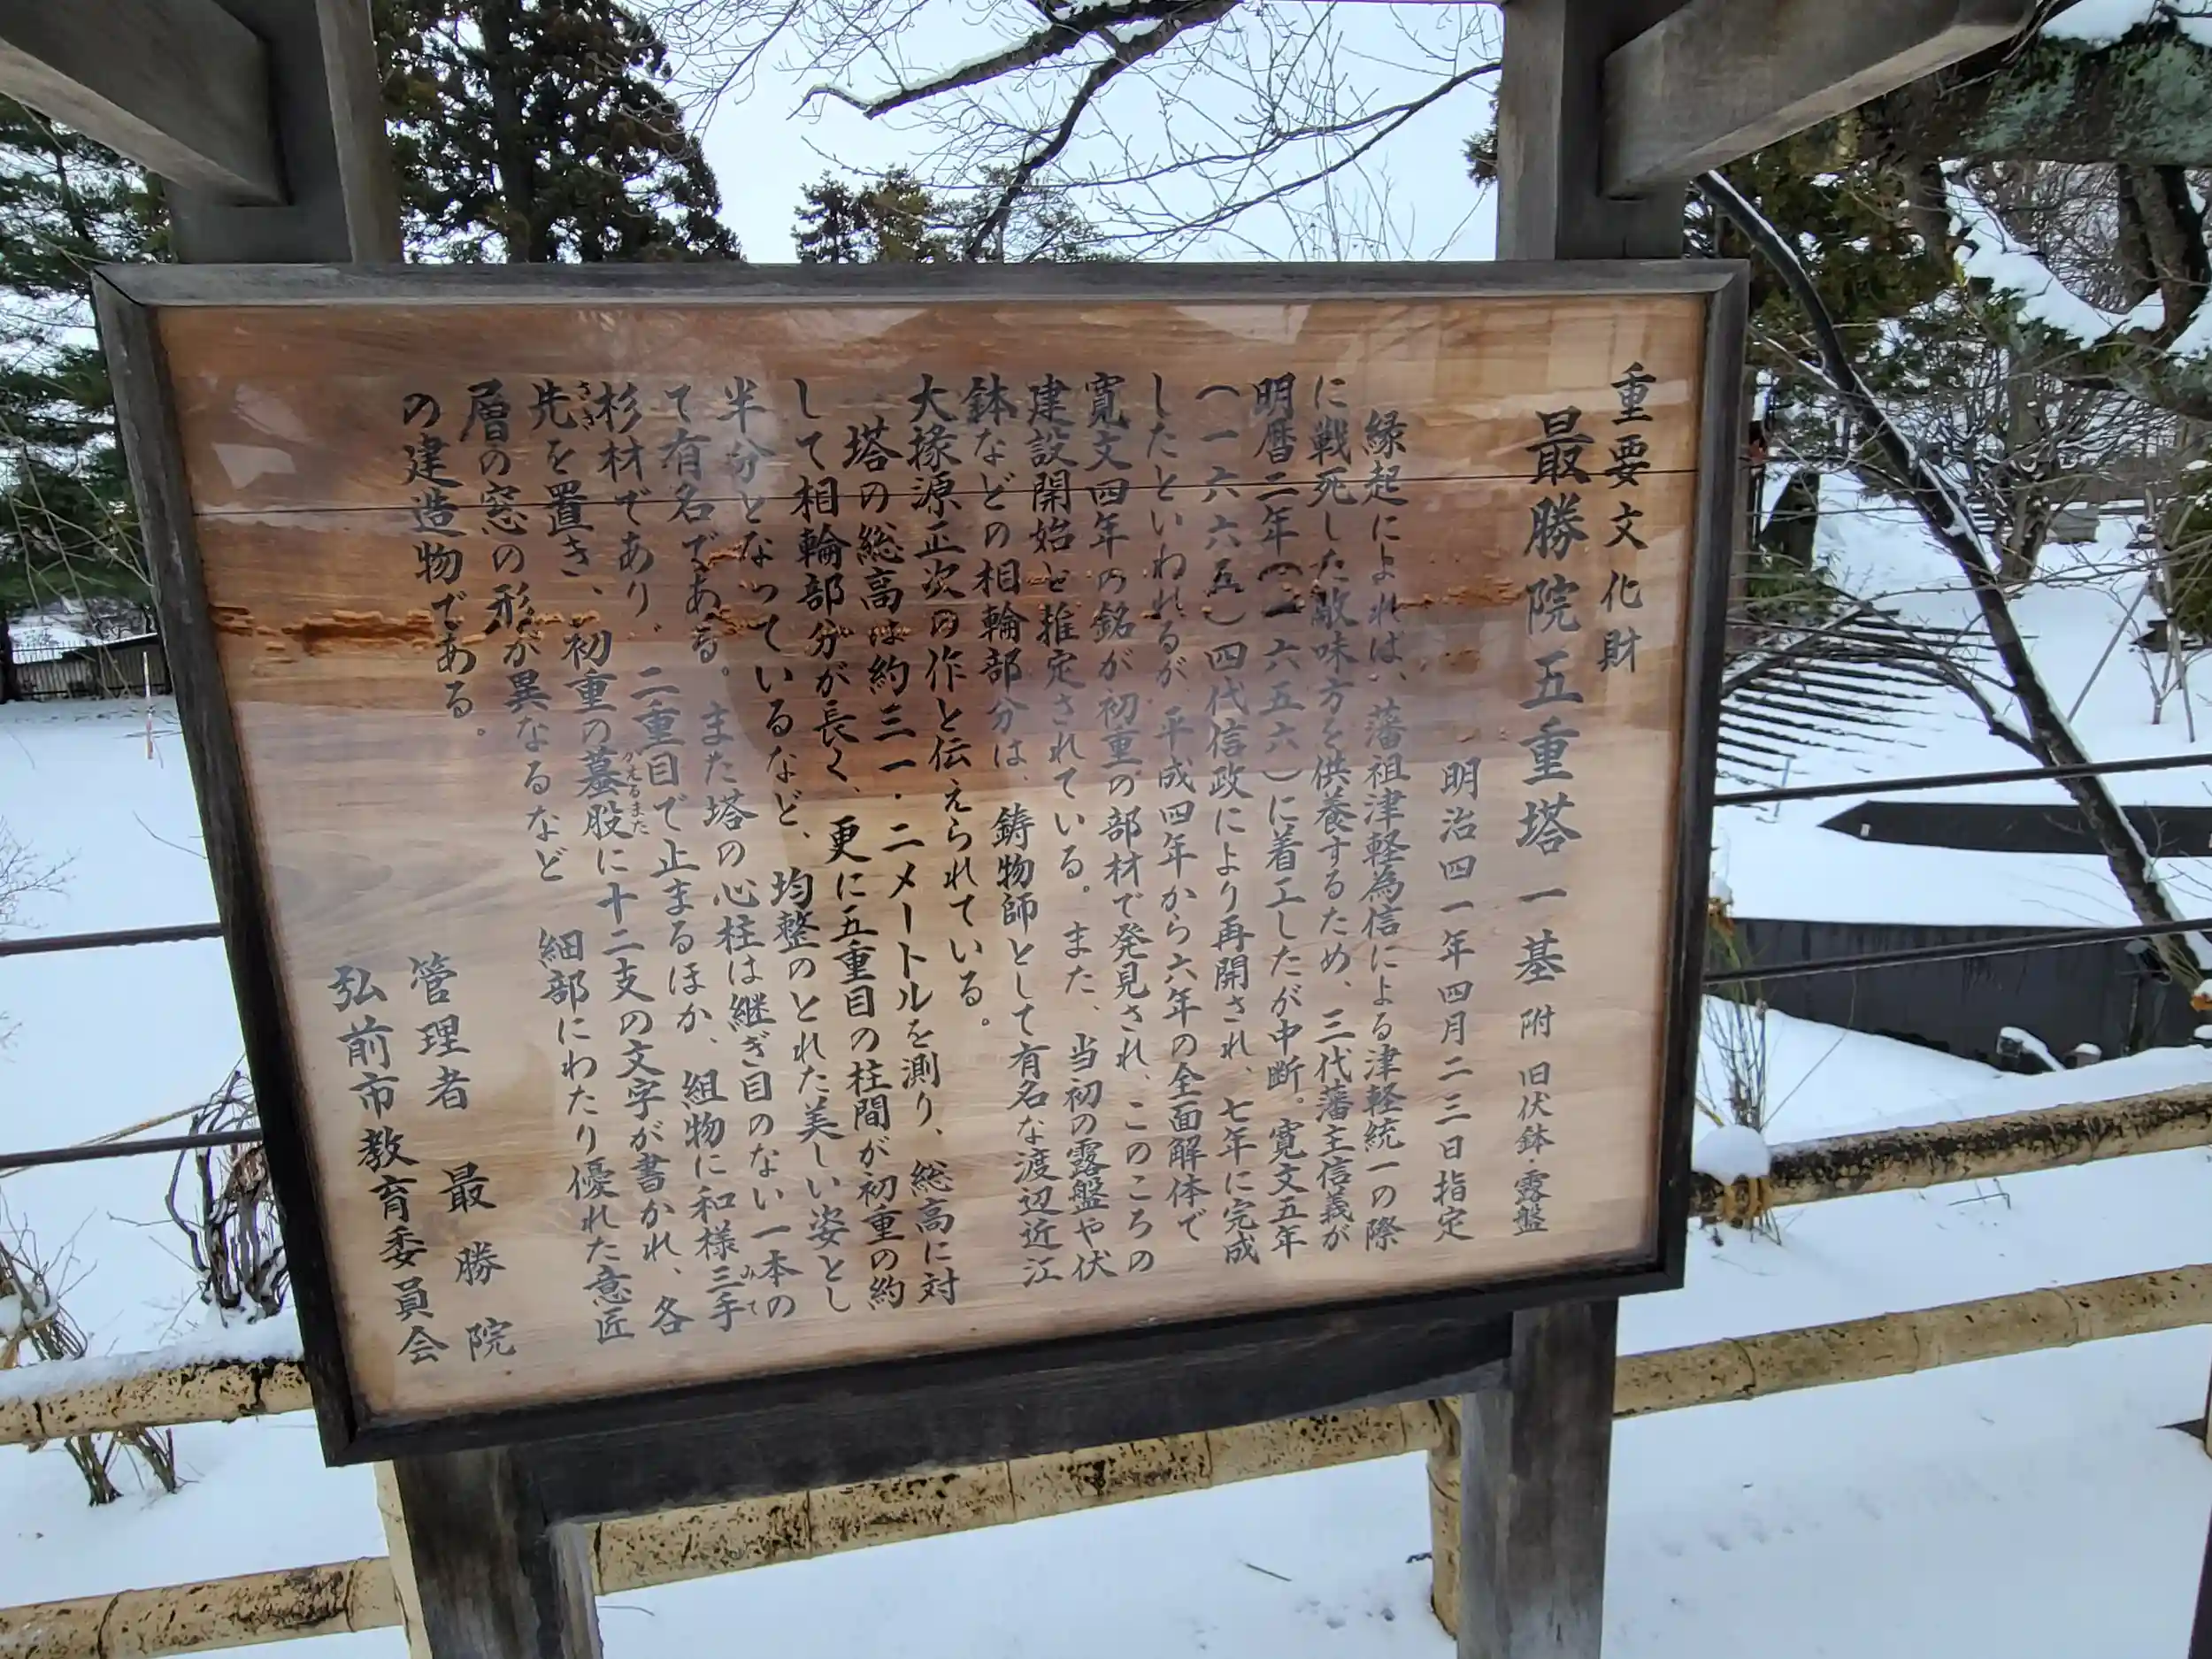 重要文化財
最勝院五重塔一基 附 旧伏鉢・露盤
明治四一年四月二三日指定
縁起によれば、藩祖津軽為信による津軽統一の際
に戦死した敵味方を供養するため、三代藩主信義が
明暦二年(一六五六)に着工したが中断。寛文五年
(一六六五)四代信政により再開され、七年に完成
したといわれるが、平成四年から六年の全面解体で
寛文四年の銘が初重の部材で発見され、このころの
建設開始と推定されている。また、当初の露盤や伏
鉢などの相輪部分は、鋳物師として有名な渡辺近江
大掾源正次の作と伝えられている。
塔の総高は約三一・二メートルを測り、総高に対
して相輪部分が長く、更に五重目の柱間が初重の約
半分となっているなど、均整のとれた美しい姿とし
て有名である。また塔の心柱は継ぎ目のない一本の
杉材であり、二重目で止まるほか、組物に和様三手
先を置き、初重の蟇股に十二支の文字が書かれ、各
層の窓の形が異なるなど 細部にわたり優れた意匠
の建造物である。
管理者 最勝院
弘前市教育委員会